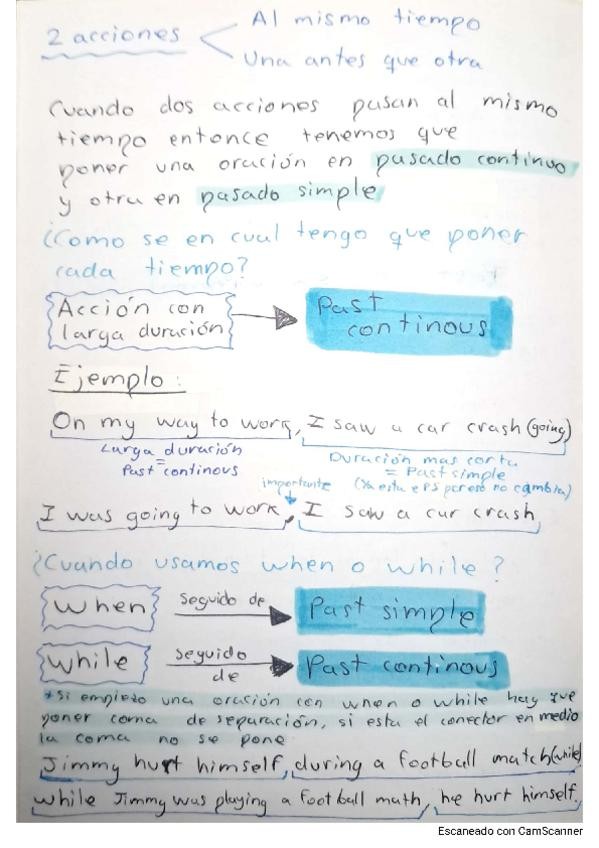 2 acciones
Al mismo tiempo
Una antes que otra
Cuando dos acciones pasan al mismo
tiempo entonce tenemos que
poner una oración en pasado continuo
y otra en pasado simple
¿Como se en cual tengo que poner
cada tiempo?
Acción con
larga duración
Past
continous
Ejemplo:
On my way to work, I saw a car crash (going)
Larga duración
=
Past continous
Duración mas corta
= Past simple
(Ya esta e PS por eso no cambia)
importante
I was going to work, I saw a car crash
¿Cuando usamos when o while?
When
seguido de
Past simple
While
seguido
de
Past continous
*Si empiezo una oración con when o while hay que
poner coma de separación, si esta el conector en medio
la coma no se pone
Jimmy hurt himself, during a football match (while)
while Jimmy was playing a football math, he hurt himself.
Escaneado con CamScanner